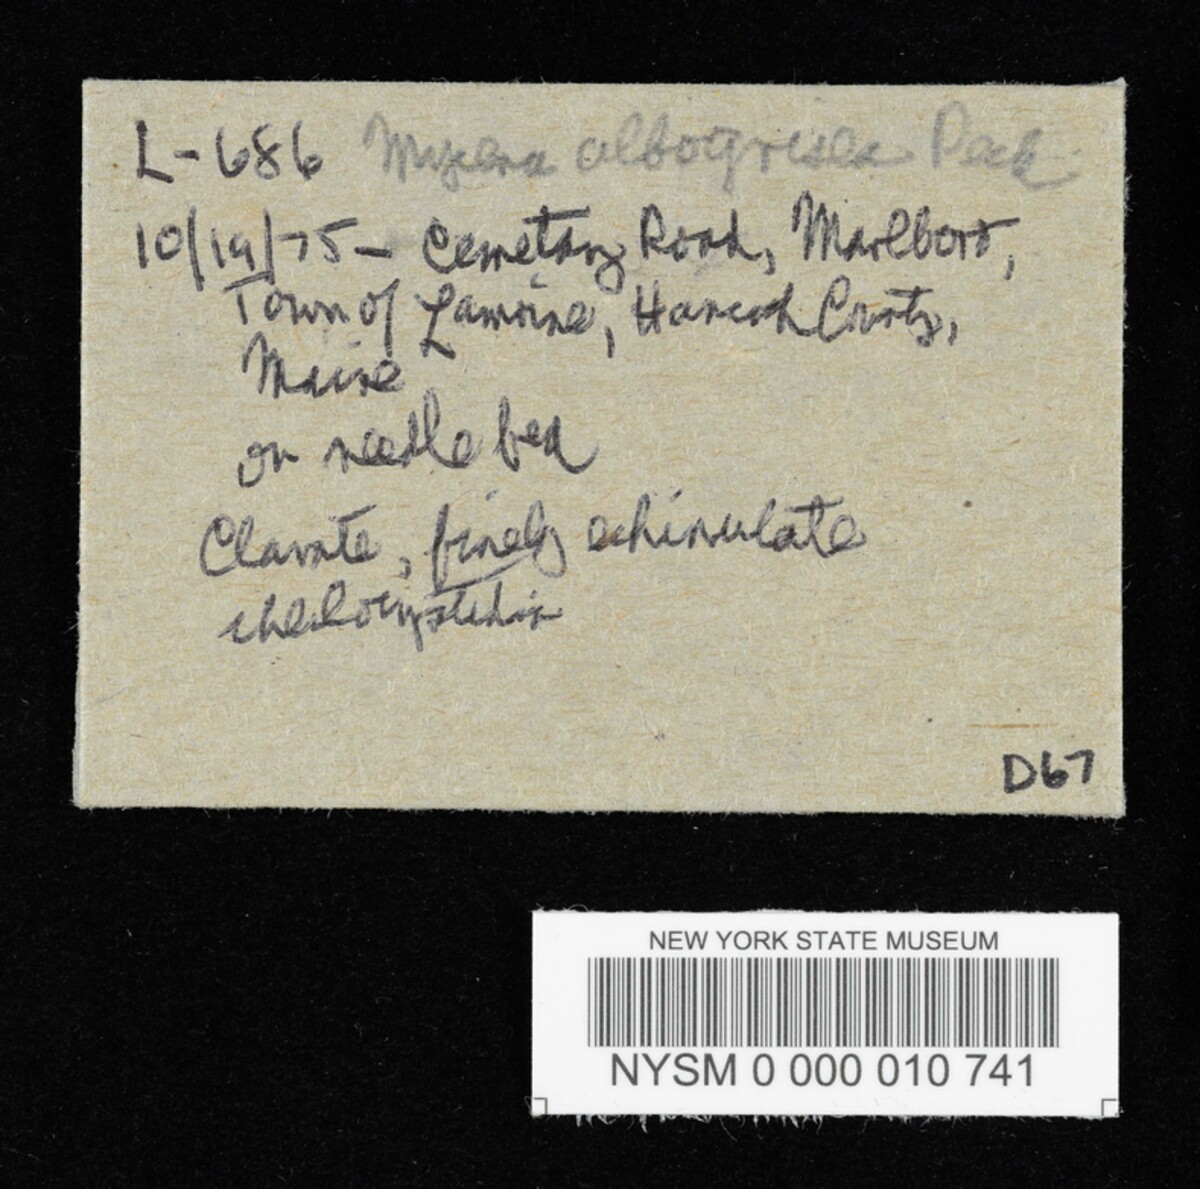 L-686 Mycena albogrisea Peck
10/19/75 - Cemetary Road, Marlboro,
Town of Lamoine, Hancock County,
Maine
on needle bed
Clavate, finely echinulate
cheilocystidia
D67
NEW YORK STATE MUSEUM
NYSM 0 000 010 741